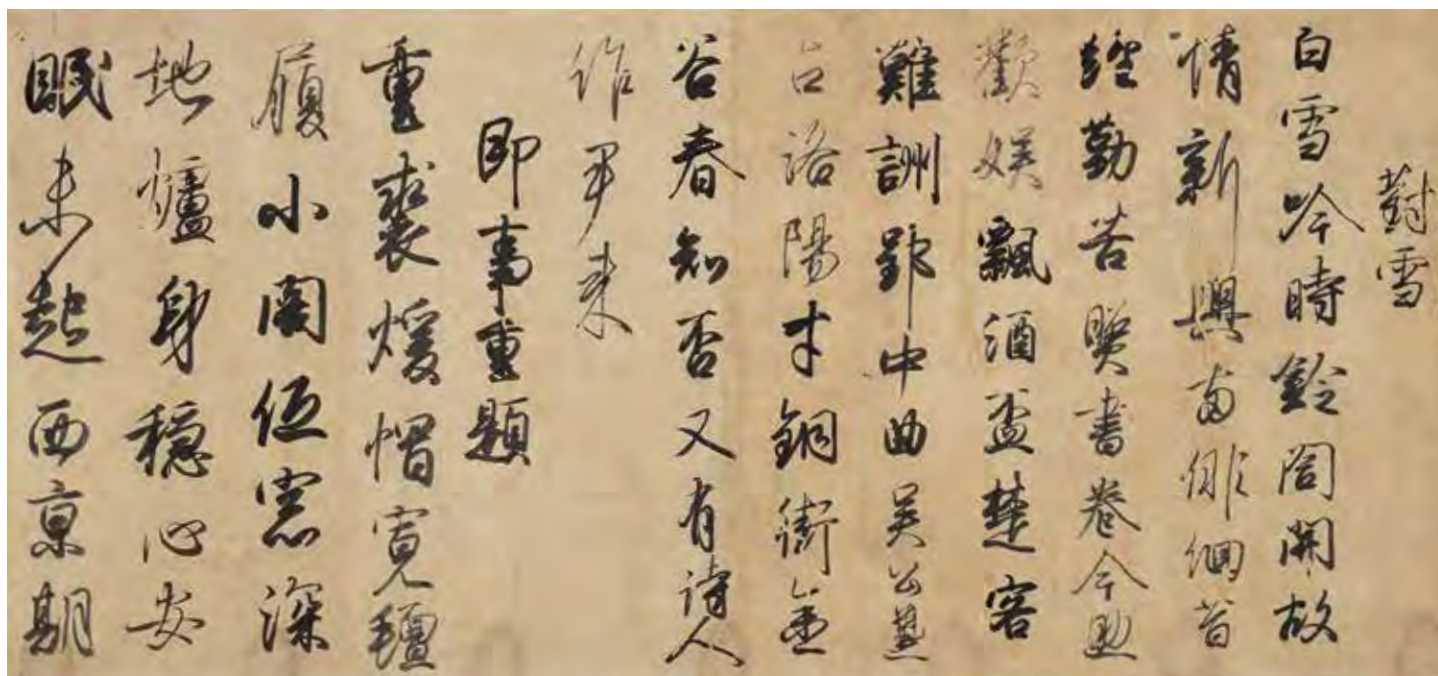 對雪
白雪吟時鈴閣開故
情新興兩俳佪昔
經勤苦照書卷今助
歡娛飄酒盃楚客
難詶郢中曲吴公兼
占洛陽才銅街金
谷春知否又有詩人
作尹来
即事重題
重裘煖帽寬氊
履小閣低窓深
地爐身穩心安
眠未起西京朝